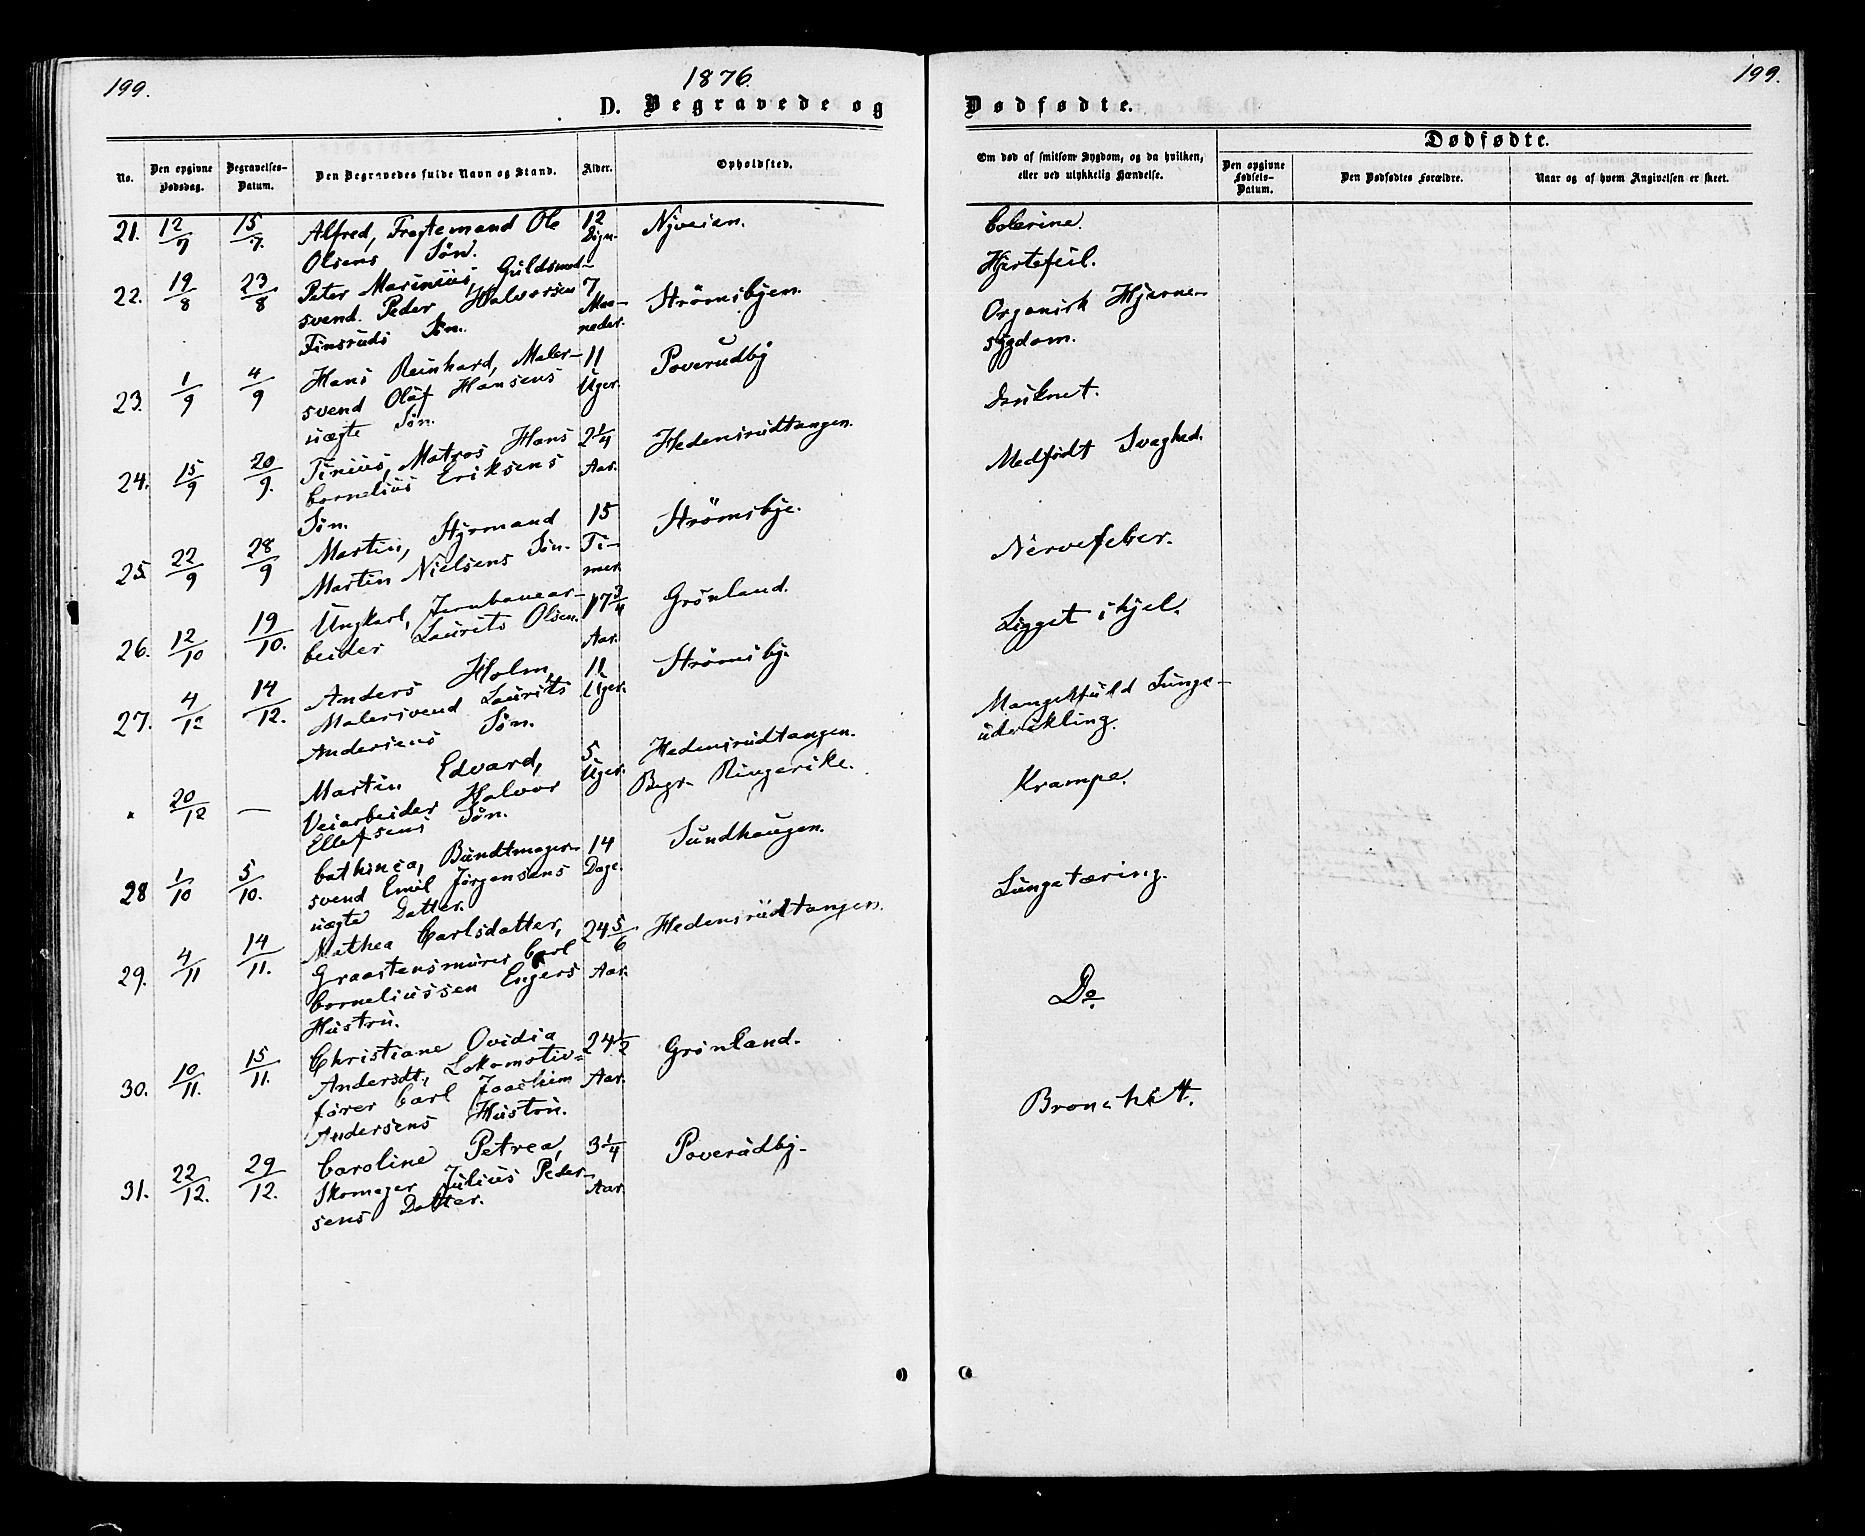 199.
1876.
199.
D. Begravede og Dødfødte.
Dødfødte.
No.
Den opgivne Dødsdag.
Begravelses-Datum.
Den Begravedes fulde Navn og Stand.
Alder.
Opholdsted.
Om død af smitsom Sygdom, og da hvilken, eller ved ulykkelig Hændelse.
Den opgivne Fødsels-Datum.
Den Dødfødtes Forældre.
Naar og af hvem Angivelsen er skeet.
21. 12/7 15/7. Alfred, Fragtemand Ole 12 Nyveien. Colerine.
Olsens Søn. Dage.
22. 19/8 23/8 Peter Marinius, Guldsmed- 7 Strömsbyen. Hjertefeil.
svend Peder Halvorsen Maa-
Finsruds Søn. neder.
23. 1/9 4/9 Hans Reinhard, Maler- 11 Poverudby Organisk Hjerne-
svend Olaf Hansens Uger. sygdom.
uægte Søn.
24. 15/9 20/9. Tinius, Matros Hans 2 1/4 Hedensrudtangen. Druknet.
Cornelius Eriksens Aar.
Søn.
25. 22/9 28/9 Martin, Styrmand 15 Strömsbye. Medfødt Svaghed.
Martin Nielsens Søn. Ti-
mer.
26. 12/10 19/10. Ungkarl, Jernbanear- 17 3/4 Grønland. Nervefeber.
beider Laurits Olsen. Aar.
27. 4/12 14/12. Anders Holm, 11 Strömsby. Ligget ihjel.
Malersvend Laurits Uger.
Andersens Søn.
" 20/12 — Martin Edvard, 5 Hedensrudtangen. Mangelfuld Lunge-
Veiarbeider Halvor Uger. Begr. Ringerike. udvikling.
Ellefsens Søn.
28 1/10 5/10. Cathinca, Bundtmager- 14 Sundhaugen. Krampe.
svend Emil Jørgensens Dage.
uægte Datter.
29. 4/11 14/11. Mathea Carlsdatter, 24 5/6 Hedensrudtangen. Lungetæring.
Graastensmurer Carl Aar.
Corneliussen Engers
Hustru.
30. 10/11. 15/11. Christiane Ovidia 24 1/2 Grønland. Do.
Andersdt., Lokomotiv- Aar.
fører Carl Joachim
Andersens Hustru.
31. 22/12. 29/12. Caroline Petrea, 3 1/4 Poverudby. Bronchit.
Skomager Julius Peder- Aar.
sens Datter.